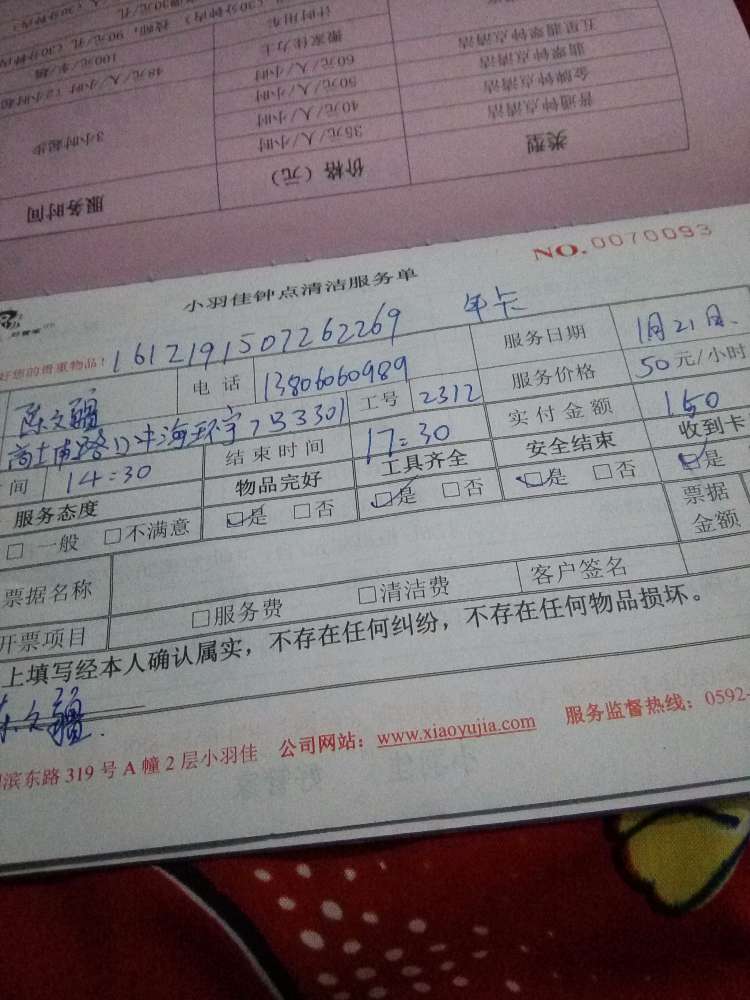 服务时间 价格（元） 类型
3小时起步 35元/人/小时 普通钟点清洁
40元/人/小时 金牌钟点清洁
50元/人/小时 翡翠钟点清洁
60元/人/小时 五星翡翠钟点清洁
48元/人/小时 搬家佳力士
100元/车/趟 计时用车
NO.0070093
小羽佳钟点清洁服务单
好您的贵重物品！ 1612191507262269 年卡
电话 13806060989 服务日期 1月21日
工号 2312 服务价格 50元/小时
间 14:30 结束时间 17:30 实付金额 150
服务态度 物品完好 工具齐全 安全结束 收到卡
□一般 □不满意 是 □否 是 □否 是 □否 是
票据名称 票据金额
开票项目 □服务费 □清洁费 客户签名
上填写经本人确认属实，不存在任何纠纷，不存在任何物品损坏。
滨东路319号A幢2层小羽佳 公司网站：www.xiaoyujia.com 服务监督热线：0592-